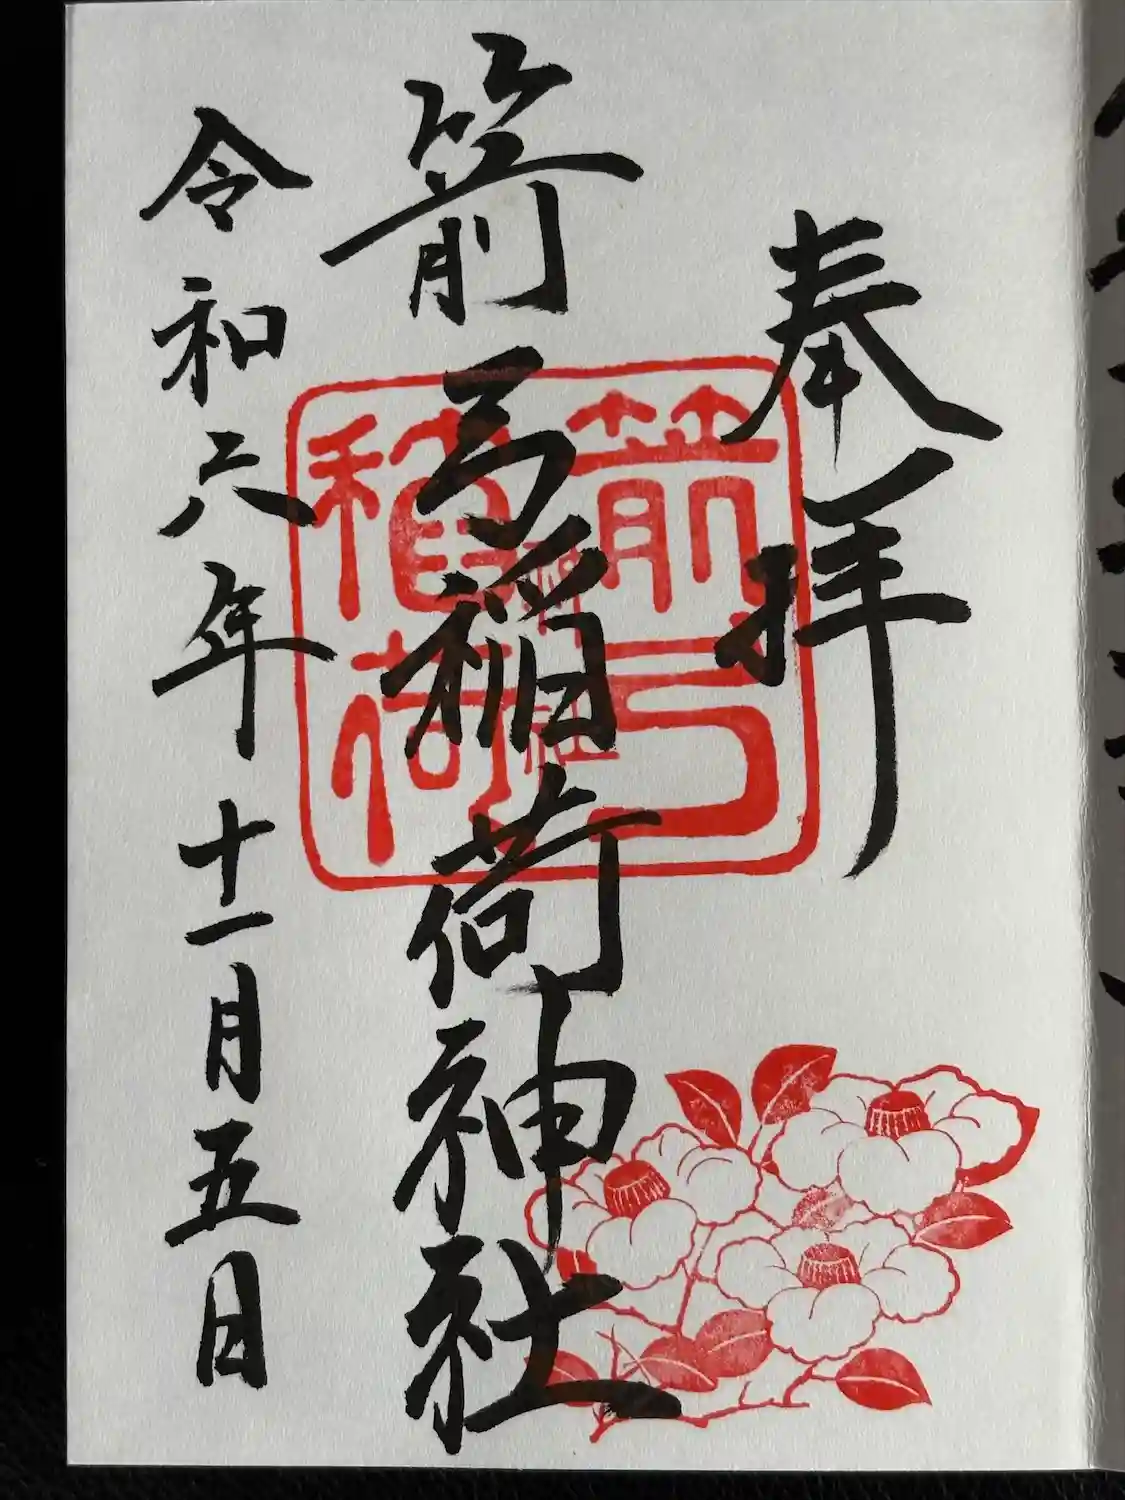 奉拝
箭弓稲荷神社
箭弓稲荷
神社
令和六年十一月五日